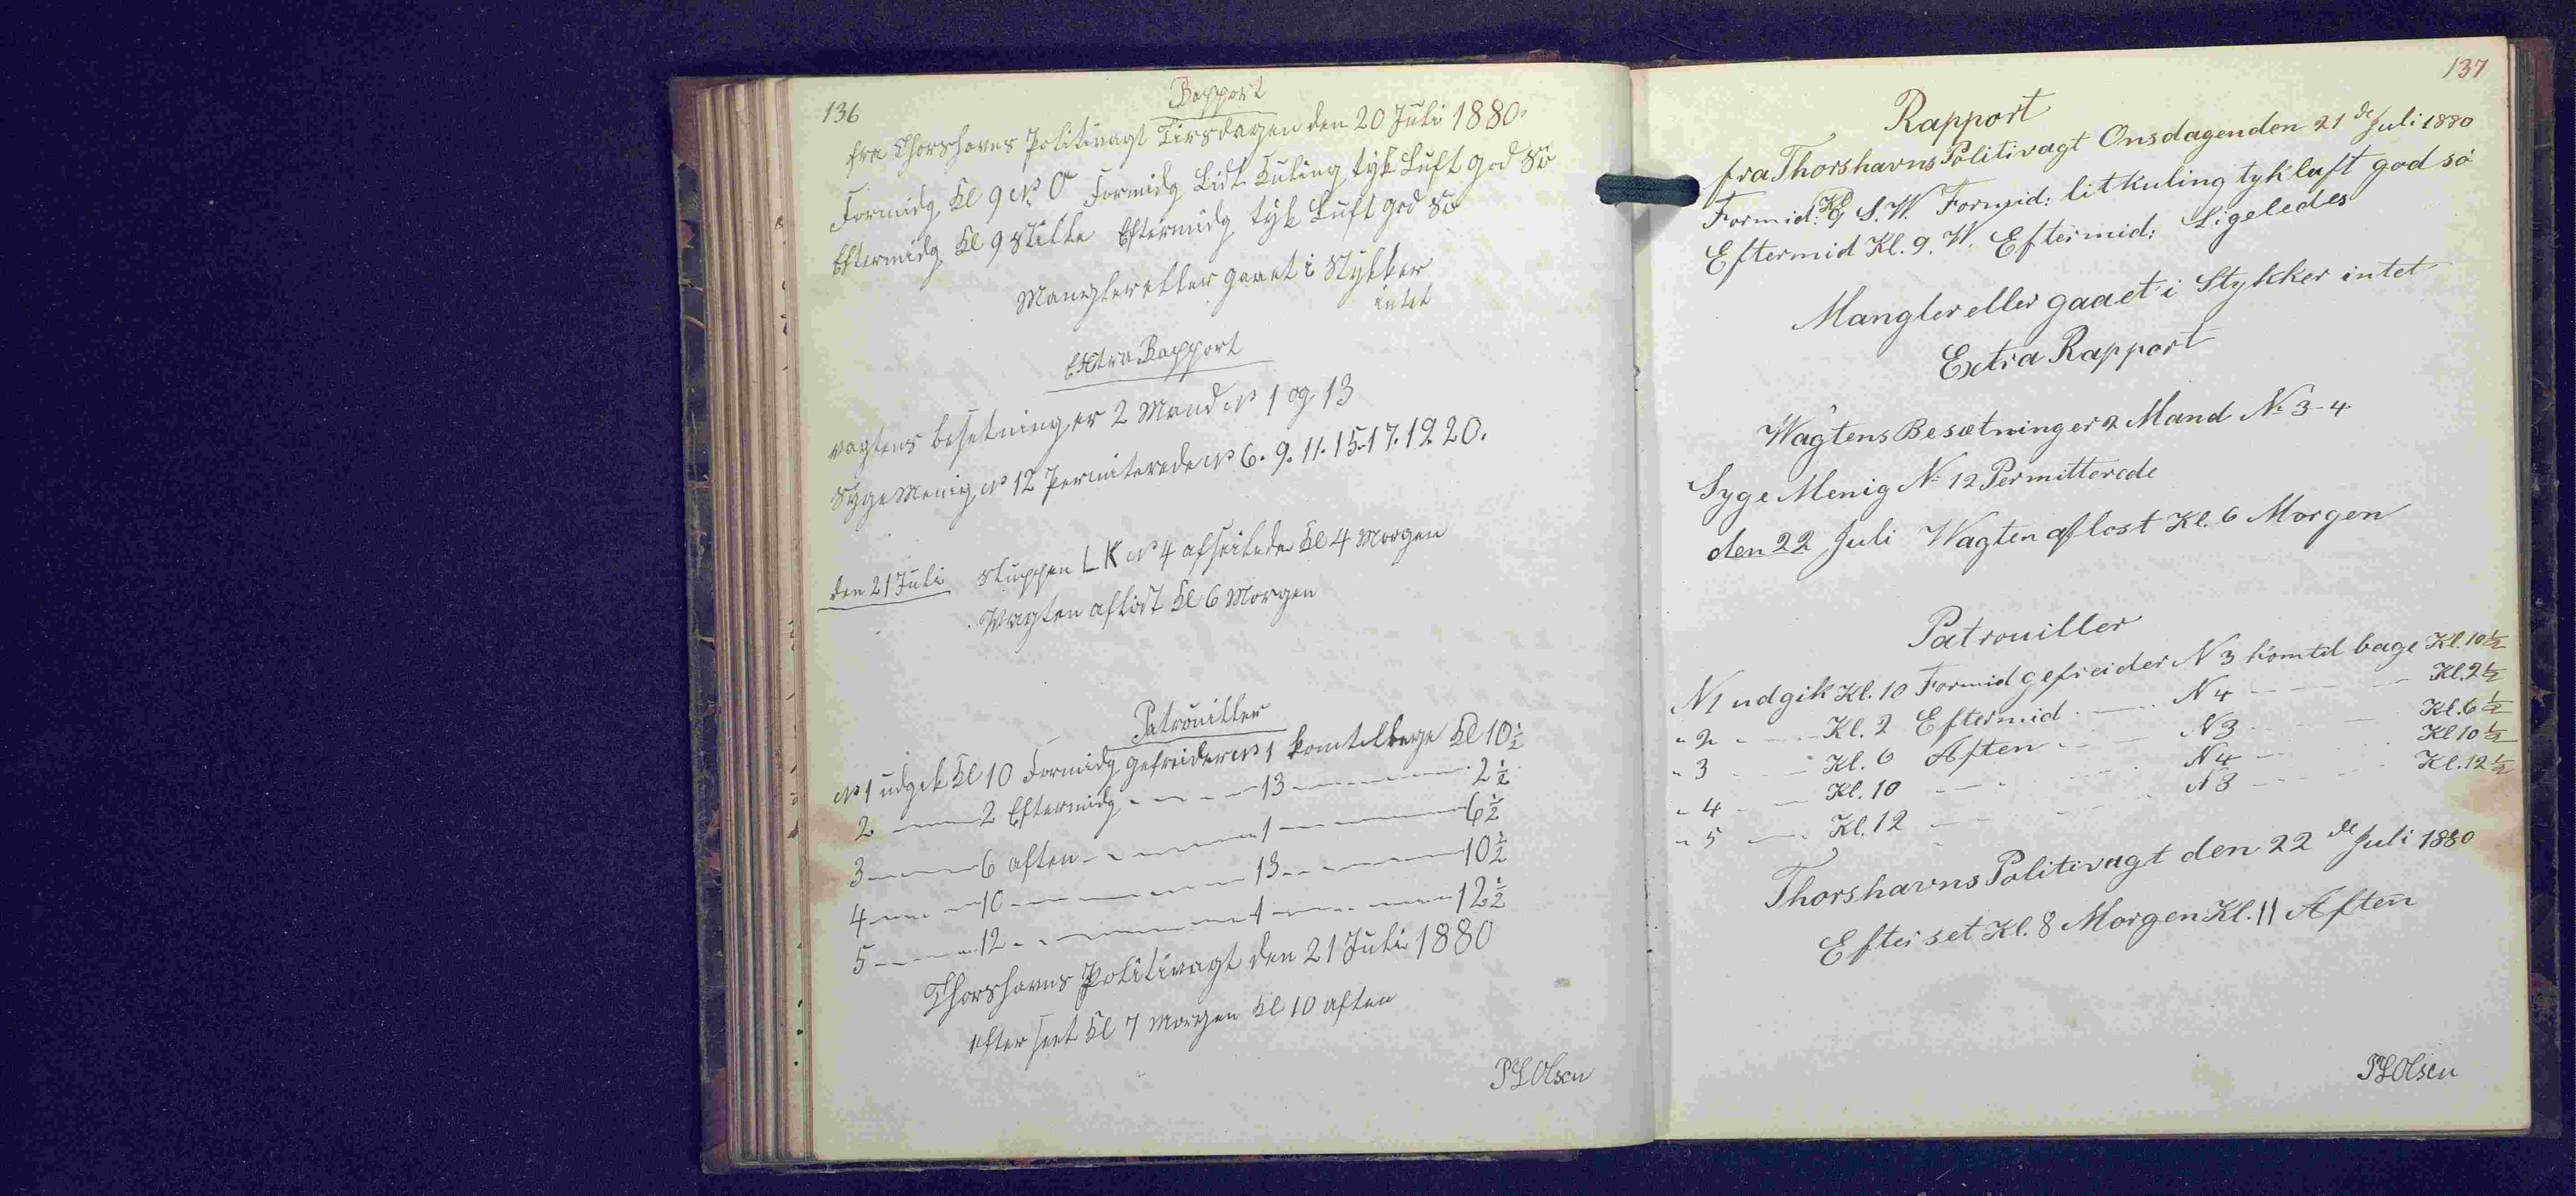 136
Rapport
fra Thorshavns Politivagt Tirsdagen den 20 Juli 1880.
Formidg Kl 9 N. O Formidg Lidt Kuling tyk Luft god Sö
Eftermidg Kl 9 Stille Eftermidg tyk Luft god Sö
Mangler eller gaaet i Stykker
intet
Extra Rapport
vagtens besetning er 2 Mand No 1 og 13
Syge Menig No 12 Permiterede No 6. 9. 11. 15. 17. 19 20.
den 21 Juli Sluppen L K No 4 afseilede Kl 4 Morgen
Vagten aflöst Kl 6 Morgen
Patrouiller
No 1 udgik Kl 10 Formidg gefreider No 1 kom tilbage Kl 10 1/2
2 — 2 Eftermidg — 13 — 2 1/2
3 — 6 aften — 1 — 6 1/2
4 — 10 — 13 — 10 1/2
5 — 12 — 1 — 12 1/2
Thorshavns Politivagt den 21 Juli 1880
efter seet Kl 7 Morgen Kl 10 aften
PL Olsen
137
Rapport
fra Thorshavns Politivagt Onsdagen den 21 de Juli 1880
Formid: Kl 9 S. W. Formid: lit kuling tyk luft god sö
Eftermid Kl. 9. W. Eftermid: Ligeledes
Mangler eller gaaet i Stykker intet
Extra Rapport
Wagtens Besætning er 2 Mand No 3-4
Syge Menig No 12 Permitterede
den 22 Juli Wagten aflost Kl. 6 Morgen
Patrouiller
N1 udgik Kl. 10 Formid gefreider N 3 kom til bage Kl. 10 1/2
" 2 — Kl. 2 Eftermid — N 4 — Kl. 2 1/2
" 3 — Kl. 6 Aften — N 3 — Kl. 6 1/2
" 4 — Kl. 10 — N 4 — Kl 10 1/2
" 5 — Kl. 12 — N 3 — Kl. 12 1/2
Thorshavns Politivagt den 22 de Juli 1880
Efter set Kl. 8 Morgen Kl. 11 Aften
PL Olsen